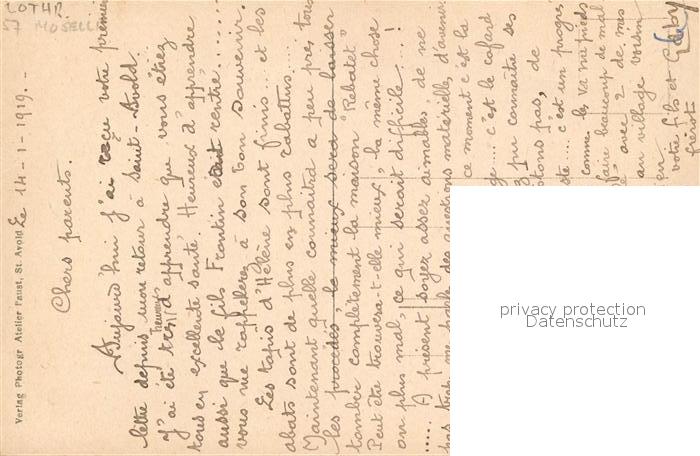 LOTHR
57 MOSELLE
Verlag Photogr Atelier Faust, St. Avold
Le 14-1-1919.-
Chers parents.
Aujourd'hui j'ai reçu votre première
lettre depuis mon retour à Saint-Avold.
J'ai été heureux d'apprendre que vous étiez
tous en excellente santé. Heureux d'apprendre
aussi que le fils Frontin était rentré......
vous me rappellerez à son bon souvenir.
Les tapis d'Hélène sont finis. et les
abats sont de plus en plus rabattus....
Maintenant qu'elle connaitra à peu près tous
les procédés, le mieux sera de laisser
tomber complètement la maison "Rebatet"
Peut être trouvera-t-elle mieux, la même chose
ou plus mal, ce qui serait difficile..!
..... A présent soyez assez aimables de ne
pas me parler des questions matérielles, d'avenir
ce moment c'est la
c'est le cafard
pu connaître ses
pas, de
c'est un progrès
comme les va nu pieds
faire beaucoup de mal
avec 2 de mes
au village voisin
votre fils et
privacy protection
Datenschutz